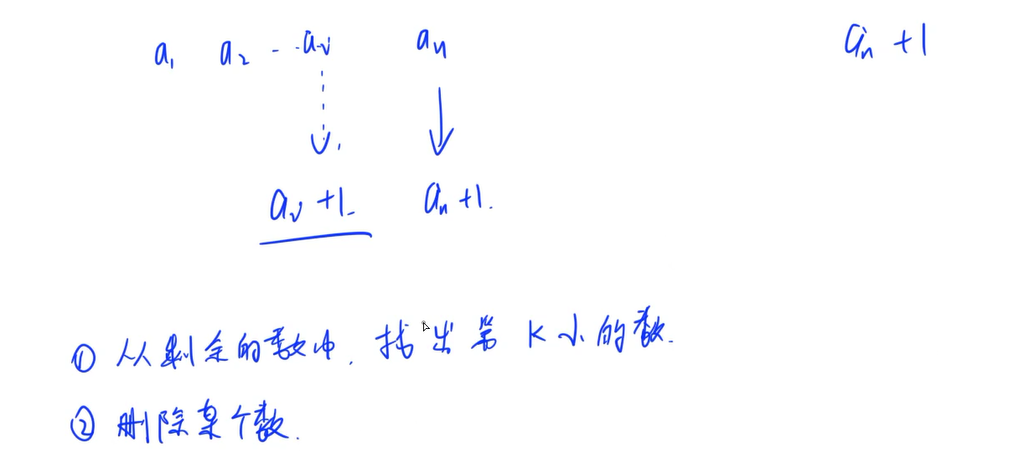 a₁ a₂ - - aᵢ aₙ aₙ + 1
aᵢ + 1 aₙ + 1.
① 从剩余的数中, 找出第 K 小的数.
② 删除某个数.